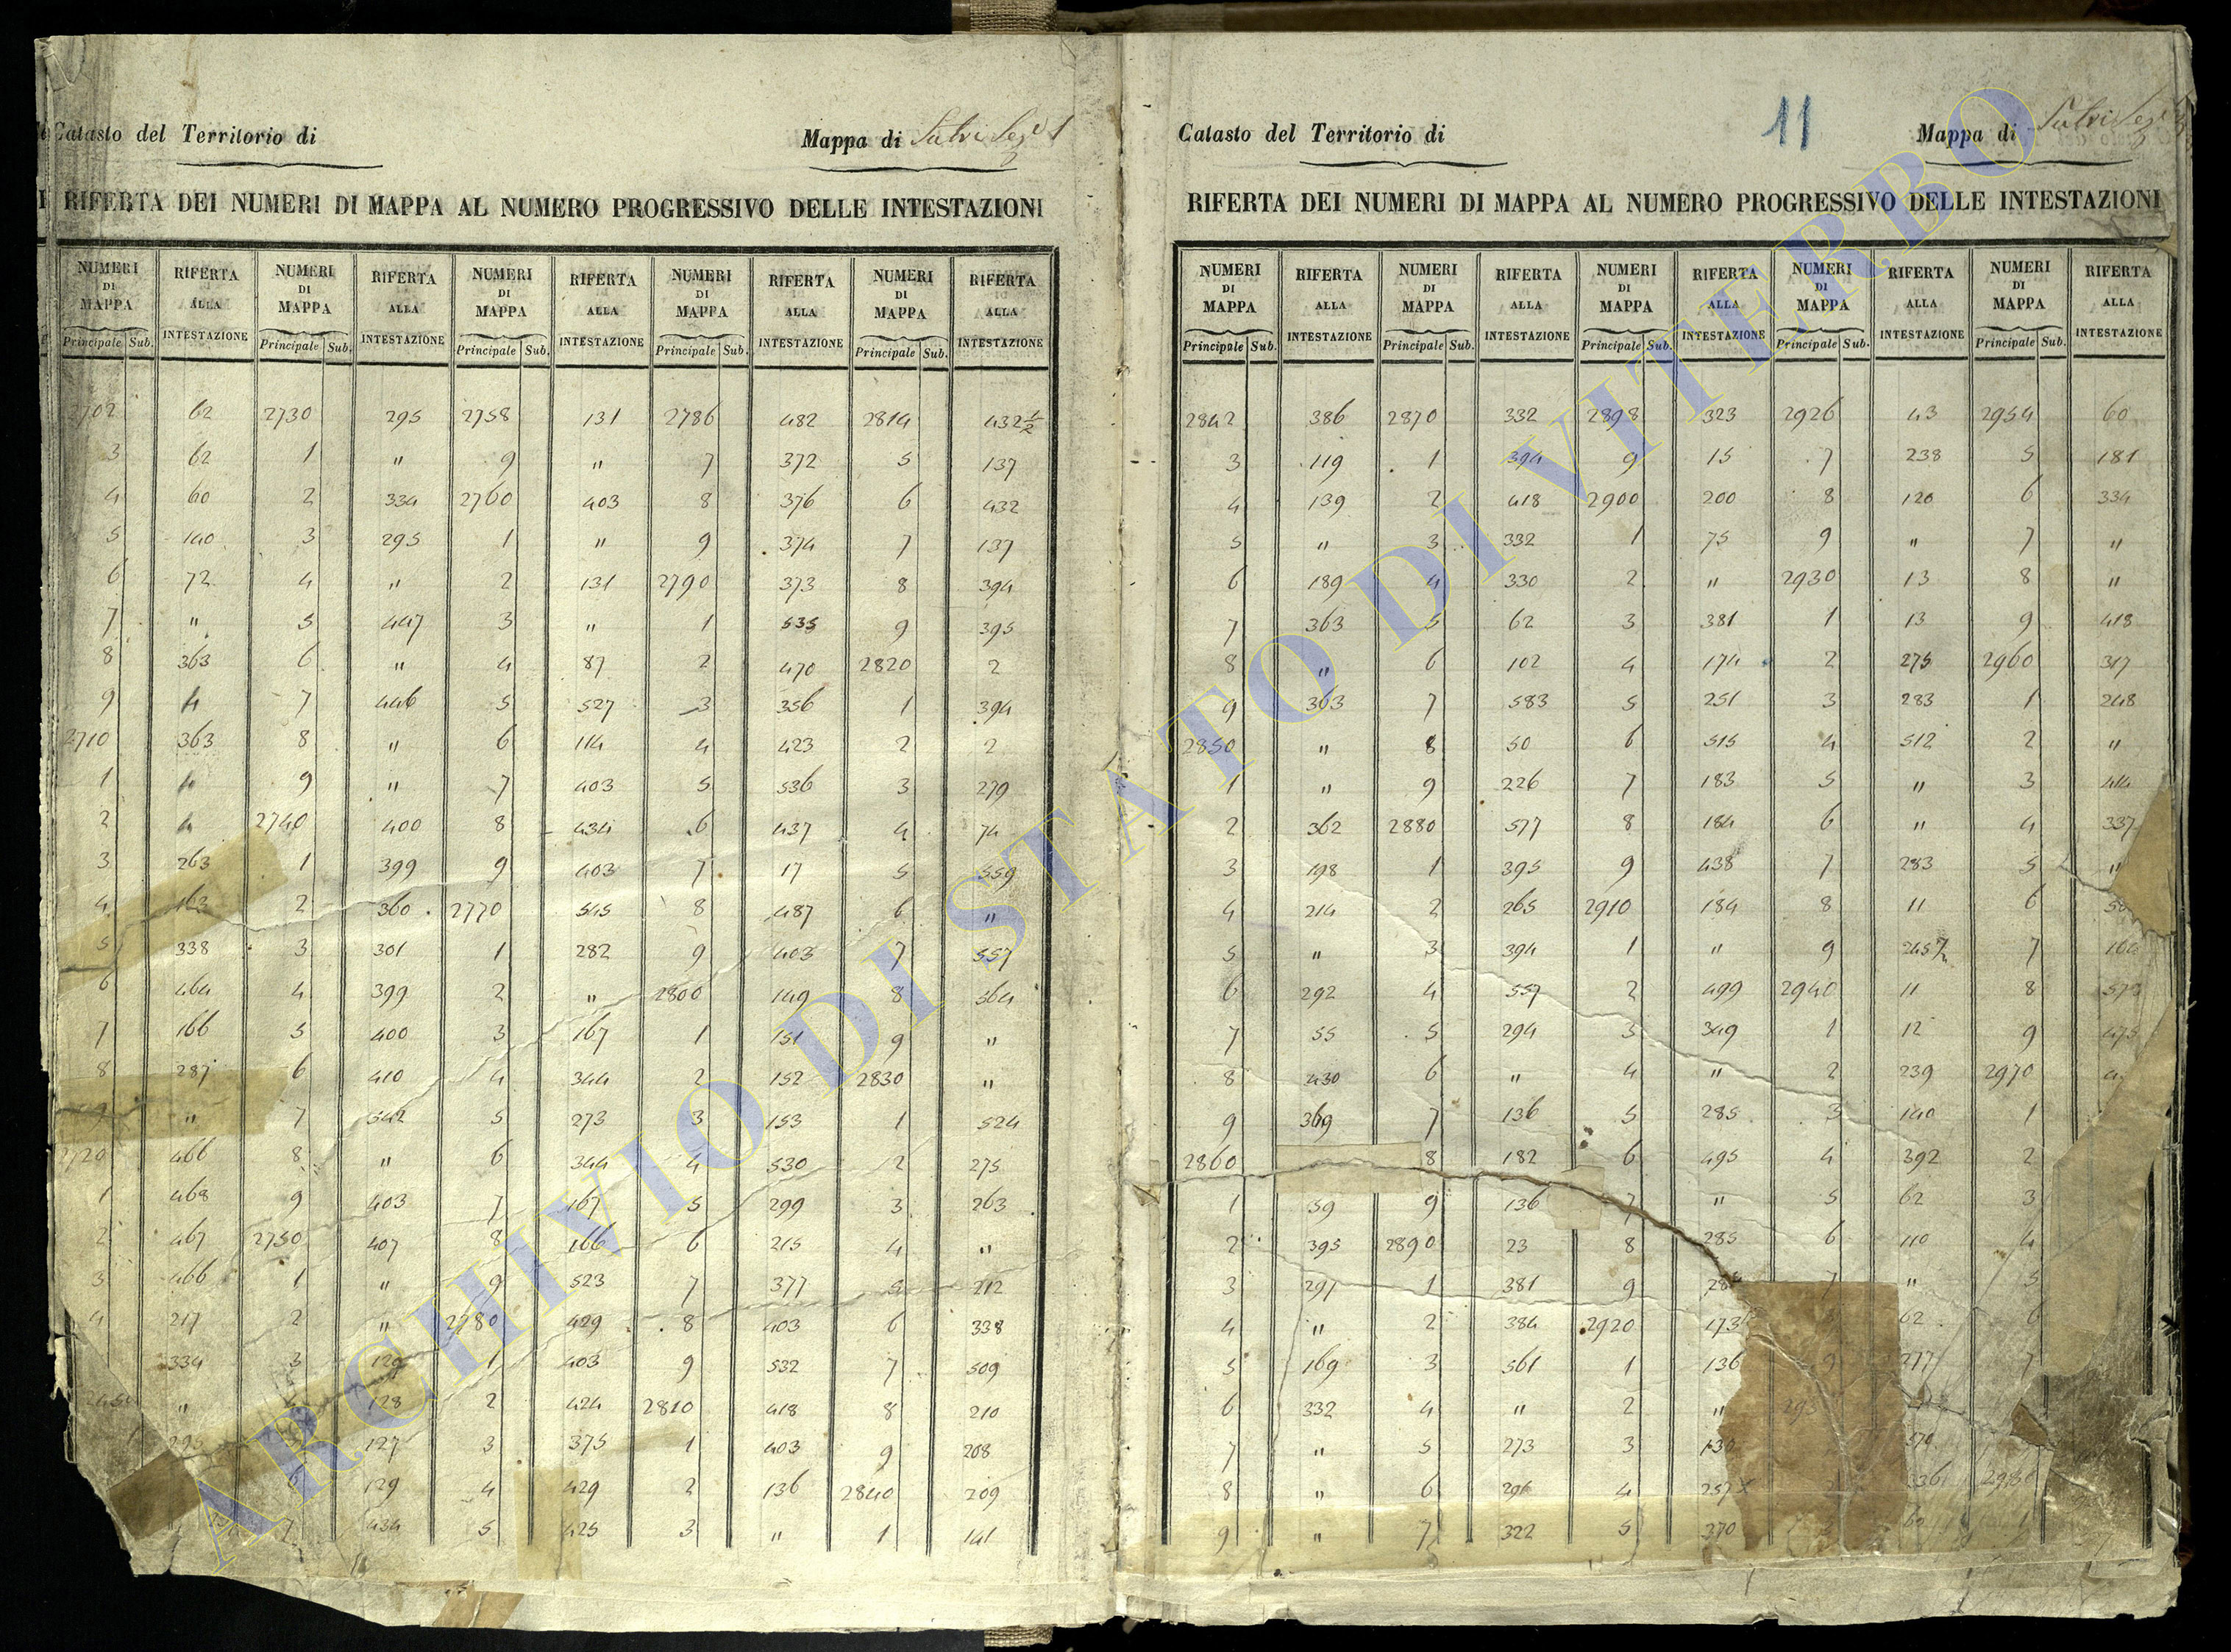 Catasto del Territorio di
Mappa di
RIFERTA DEI NUMERI DI MAPPA AL NUMERO PROGRESSIVO DELLE INTESTAZIONI
NUMERI DI MAPPA RIFERTA ALLA INTESTAZIONE NUMERI DI MAPPA RIFERTA ALLA INTESTAZIONE NUMERI DI MAPPA RIFERTA ALLA INTESTAZIONE NUMERI DI MAPPA RIFERTA ALLA INTESTAZIONE NUMERI DI MAPPA RIFERTA ALLA INTESTAZIONE
Principale Sub. Principale Sub. Principale Sub. Principale Sub. Principale Sub.
2702 62 2730 295 2758 131 2786 482 2814 432 1/2
3 62 1 " 9 " 7 372 5 137
4 60 2 334 2760 403 8 376 6 432
5 140 3 295 1 " 9 374 7 137
6 72 4 " 2 131 2790 373 8 394
7 " 5 447 3 " 1 535 9 395
8 363 6 " 4 87 2 470 2820 2
9 7 446 5 527 3 356 1 394
2710 363 8 " 6 114 4 423 2 2
1 9 " 7 403 5 536 3 279
2 2740 400 8 434 6 437 4 74
3 263 1 399 9 403 7 17 5 559
4 163 2 360 2770 545 8 487 6 "
5 338 3 301 1 282 9 403 7 557
6 464 4 399 2 " 2800 149 8 564
7 166 5 400 3 167 1 151 9 "
8 287 6 410 4 344 2 152 2830 "
" 7 342 5 273 3 153 1 524
2720 466 8 " 6 344 4 530 2 275
1 468 9 403 7 167 5 299 3 263
2 467 2750 407 8 166 6 215 4 "
3 466 1 " 9 523 7 377 5 212
4 217 2 " 2780 429 8 403 6 338
334 3 129 1 403 9 532 7 509
" 4 128 2 424 2810 418 8 210
295 127 3 375 1 403 9 208
6 129 4 429 2 136 2840 209
7 434 5 425 3 " 1 141
Catasto del Territorio di
11
Mappa di
RIFERTA DEI NUMERI DI MAPPA AL NUMERO PROGRESSIVO DELLE INTESTAZIONI
NUMERI DI MAPPA RIFERTA ALLA INTESTAZIONE NUMERI DI MAPPA RIFERTA ALLA INTESTAZIONE NUMERI DI MAPPA RIFERTA ALLA INTESTAZIONE NUMERI DI MAPPA RIFERTA ALLA INTESTAZIONE NUMERI DI MAPPA RIFERTA ALLA INTESTAZIONE
Principale Sub. Principale Sub. Principale Sub. Principale Sub. Principale Sub.
2842 386 2870 332 2898 323 2926 43 2954 60
3 119 1 394 9 15 7 238 5 181
4 139 2 418 2900 200 8 120 6 334
5 " 3 332 1 75 9 " 7 "
6 189 4 330 2 " 2930 13 8 "
7 363 5 62 3 381 1 13 9 418
8 " 6 102 4 174 2 275 2960 317
9 363 7 583 5 251 3 283 1 248
2850 " 8 50 6 515 4 512 2 "
1 " 9 226 7 183 5 " 3 414
2 362 2880 577 8 184 6 " 4 337
3 198 1 395 9 438 7 283 5 "
4 214 2 265 2910 184 8 11 6
5 " 3 394 1 " 9 7
6 292 4 557 2 499 2940 11 8
7 55 5 294 3 349 1 12 9
8 430 6 " 4 " 2 239 2970
9 369 7 136 5 285 3 140 1
2860 8 182 6 495 4 392 2
1 59 9 136 7 " 5 62 3
2 395 2890 23 8 285 6 110 4
3 291 1 381 9 7 " 5
4 " 2 384 2920 173 62 6
5 169 3 561 1 136 7
6 332 4 " 2 "
7 " 5 273 3
8 " 6 296 4 257
9 " 7 322 5 370
ARCHIVIO DI STATO DI VITERBO